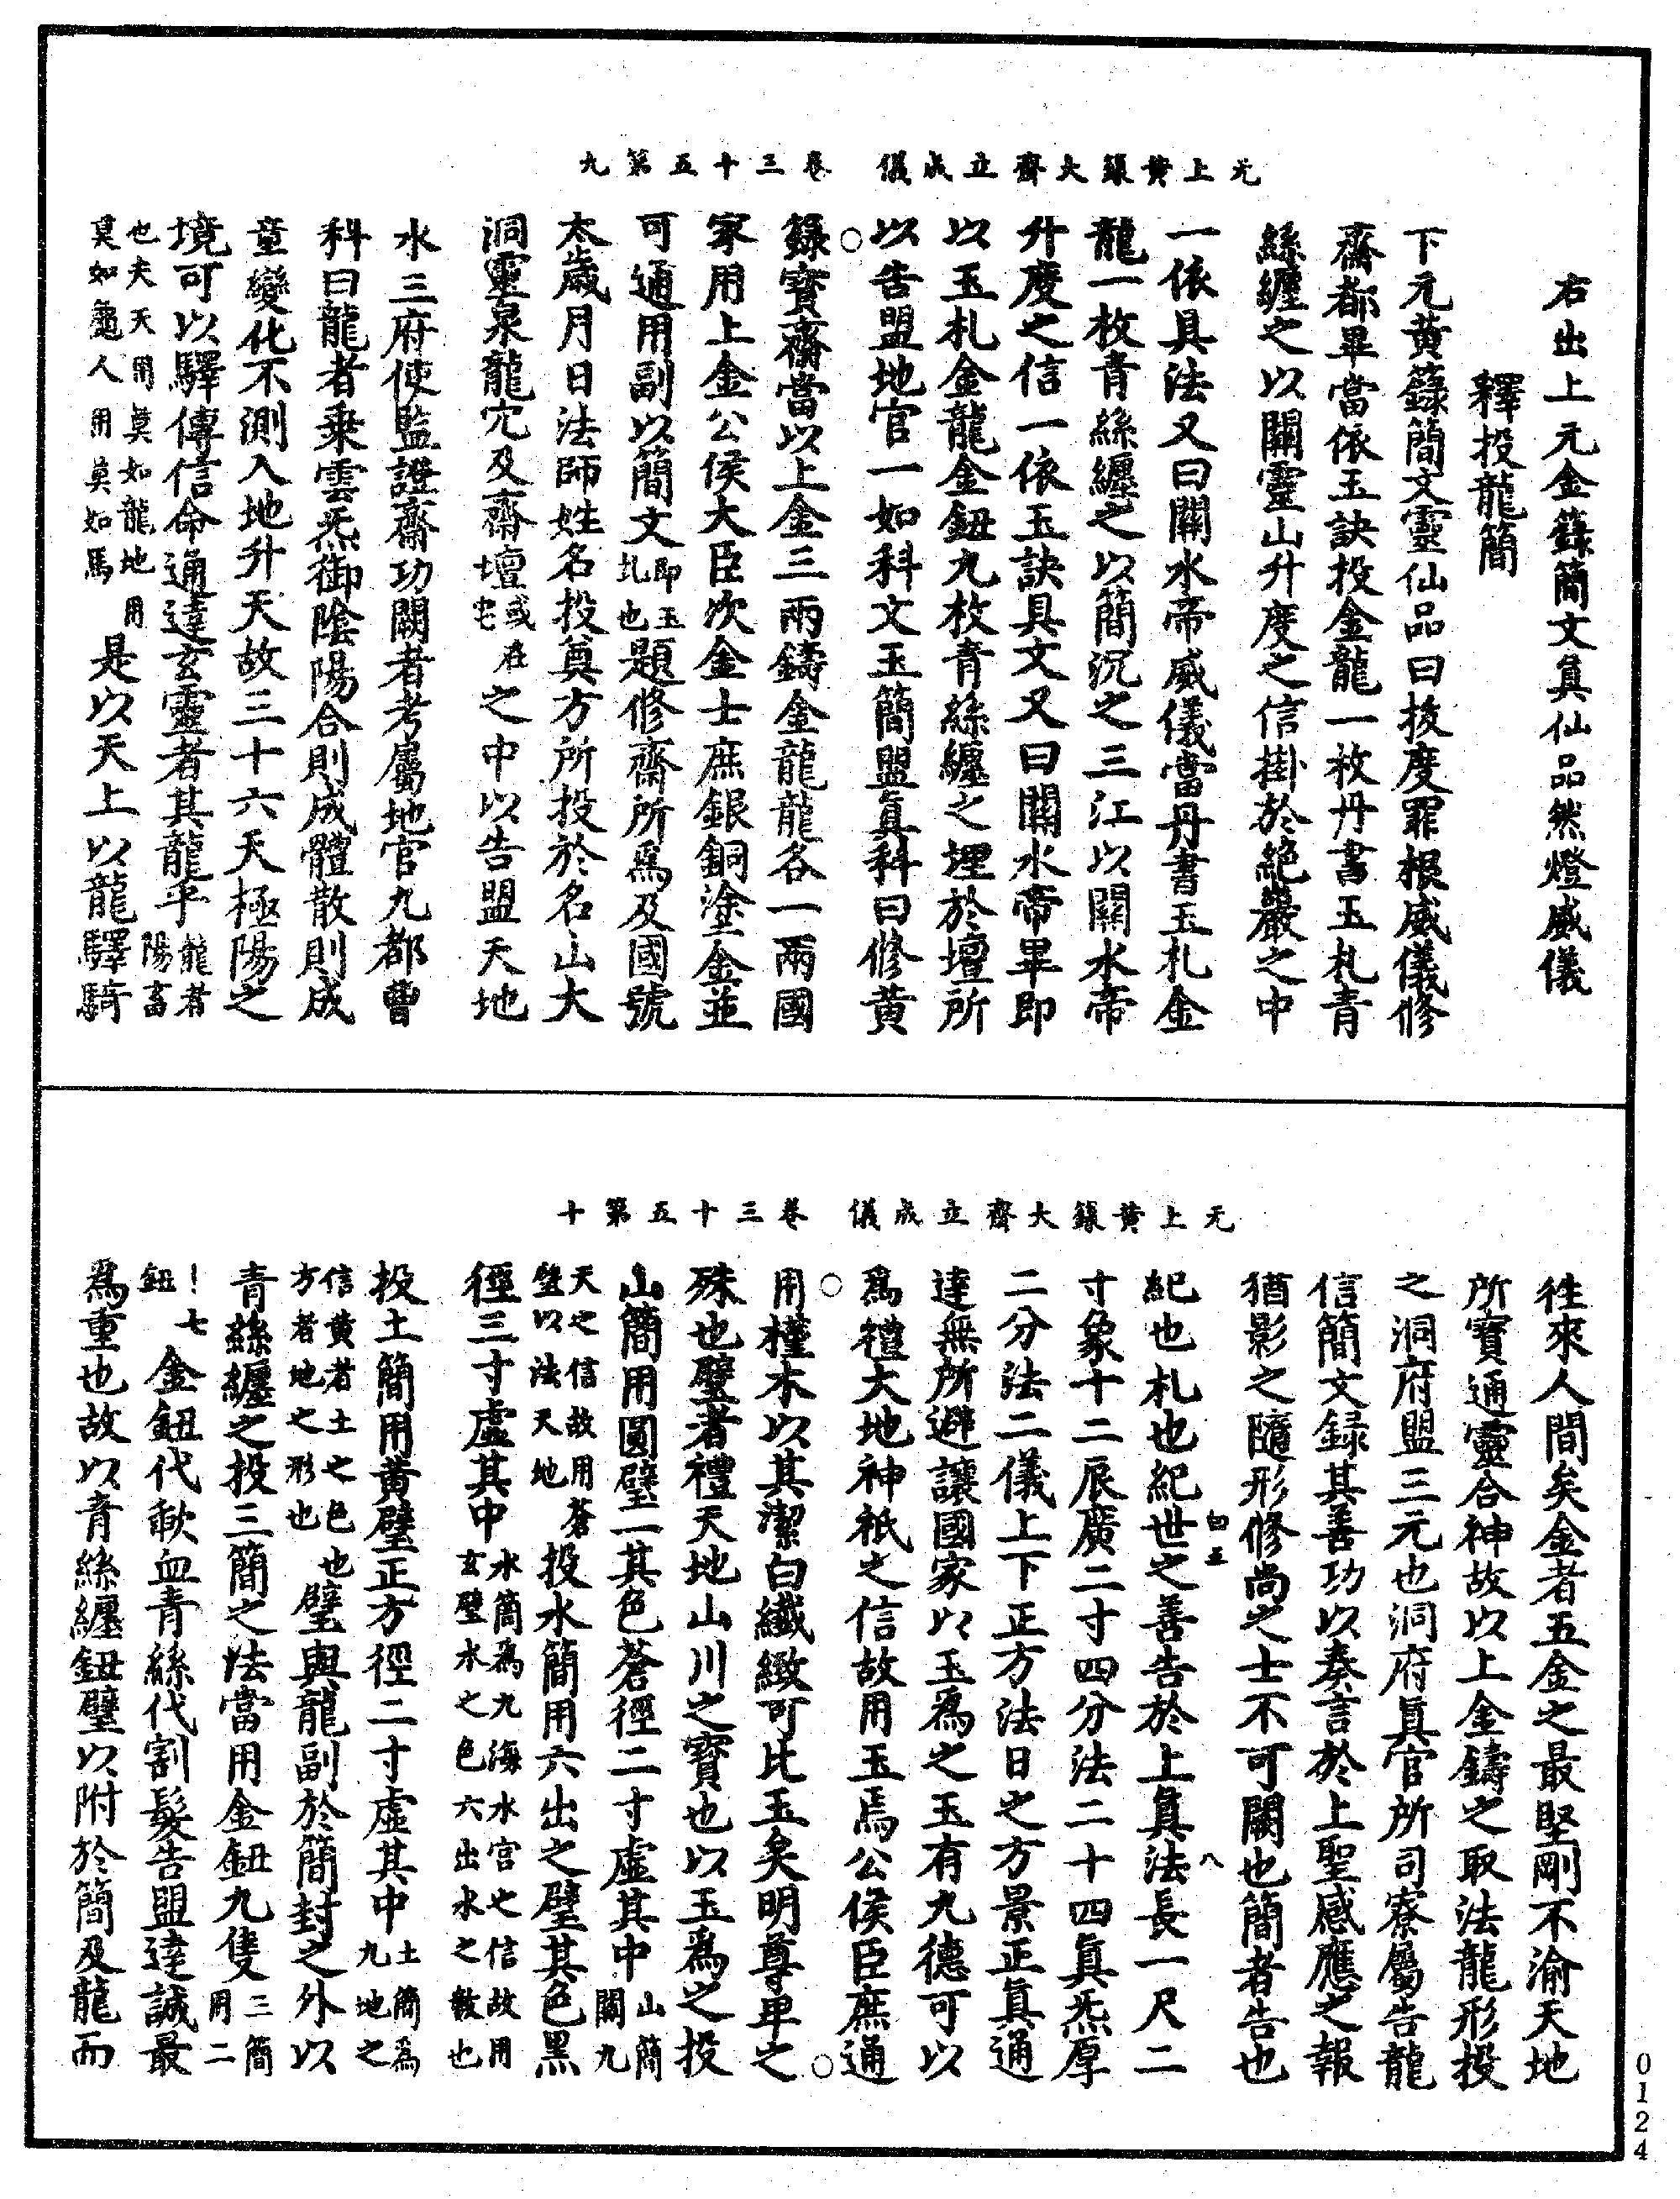 无上黃籙大齋立成儀　卷三十五第九
右出上元金籙簡文真仙品然燈威儀
釋投龍簡
下元黃籙簡文靈仙品曰拔度罪根威儀修
齋都畢當依玉訣投金龍一枚丹書玉札青
絲纏之以關靈山升度之信掛於絕巖之中
一依具法又曰關水帝威儀當丹書玉札金
龍一枚青絲纏之以簡沉之三江以關水帝
升度之信一依玉訣具文又曰關水帝畢即
以玉札金龍金鈕九枚青絲纏之埋於壇所
以告盟地官一如科文玉簡盟真科曰修黃
○籙寶齋當以上金三兩鑄金龍龍各一兩國
家用上金公侯大臣次金士庶銀銅塗金並
可通用副以簡文即玉札也題修齋所為及國號
太歲月日法師姓名投奠方所投於名山大
洞靈泉龍穴及齋壇或在宅之中以告盟天地
水三府使監證齋功闕者考屬地官九都曹
科曰龍者乗雲炁御陰陽合則成體散則成
章變化不測入地升天故三十六天極陽之
境可以驛傳信命通達玄靈者其龍乎龍者陽畜
也夫天用莫如龍地用莫如龜人用莫如馬是以天上以龍驛騎
无上黃籙大齋立成儀　卷三十五第十
往來人間矣金者五金之最堅剛不渝天地
所寶通靈合神故以上金鑄之取法龍形投
之洞府盟三元也洞府真官所司寮屬告龍
信簡文録其善功以奏言於上聖感應之報
猶影之隨形修尚之士不可闕也簡者告也
紀也札也紀世之善告於上真法長一尺二
白五　八
寸象十二辰廣二寸四分法二十四真炁厚
二分法二儀上下正方法日之方景正真通
達無所避讓國家以玉為之玉有九德可以
為禮大地神祇之信故用玉焉公侯臣庶通
○用槿木以其潔白纖緻可比玉矣明尊卑之○
殊也璧者禮天地山川之寶也以玉為之投
山簡用圓璧一其色蒼徑二寸虛其中山簡關九
天之信故用蒼璧以法天地投水簡用六出之璧其色黑
徑三寸虛其中水簡為九海水官之信故用玄璧水之色六出水之數也
投土簡用黃璧正方徑二寸虛其中土簡為九地之
信黃者土之色也方者地之形也璧與龍副於簡封之外以
青絲纏之投三簡之法當用金鈕九隻三簡用二
！七鈕金鈕代歃血青絲代割髮告盟達誠最
為重也故以青絲纏鈕璧以附於簡及龍而
0124